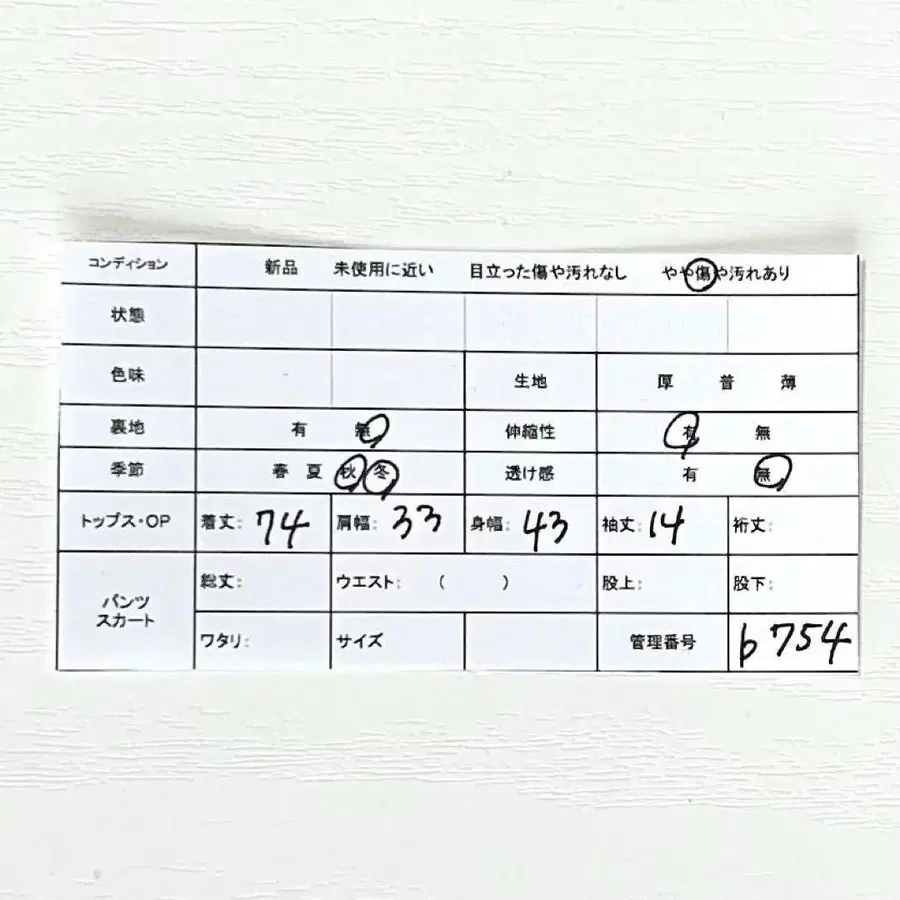 コンディション 新品 未使用に近い 目立った傷や汚れなし やや傷や汚れあり
状態
色味 生地 厚 普 薄
裏地 有 無 伸縮性 有 無
季節 春 夏 秋 冬 透け感 有 無
トップス・OP 着丈: 74 肩幅: 33 身幅: 43 袖丈: 14 裄丈:
パンツ
スカート
総丈: ウエスト: ( ) 股上: 股下:
ワタリ: サイズ 管理番号 b754